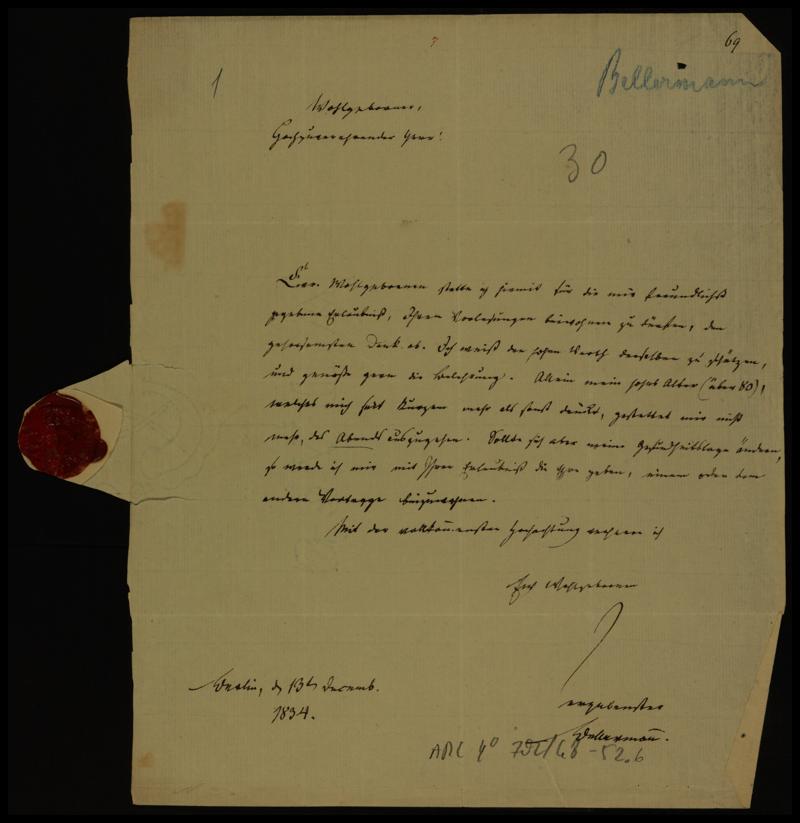 69
Bellermann
1
Wohlgeborner,
Hochzuverehrender Herr!
30
Ew. Wohlgeboren statte ich hiemit für die mir freundlichst
gegebene Erlaubniß, Ihren Vorlesungen beiwohnen zu dürfen, den
gehorsamsten Dank ab. Ich weiß den hohen Werth derselben zu schätzen,
und genöße gern die Belehrung. Allein mein hohes Alter (über 80),
welches mich seit Kurzem mehr als sonst drückt, gestattet mir nicht
mehr, des Abends auszugehen. Sollte sich aber meine Gesundheitslage ändern,
so werde ich mir mit Ihrer Erlaubniß die Ehre geben, einem oder dem
andern Vortrage beizuwohnen.
Mit der vollkommensten Hochachtung verharre ich
Euer Wohlgeboren
Berlin, d 13ten Decemb.
1834.
ergebenster
Bellermann.